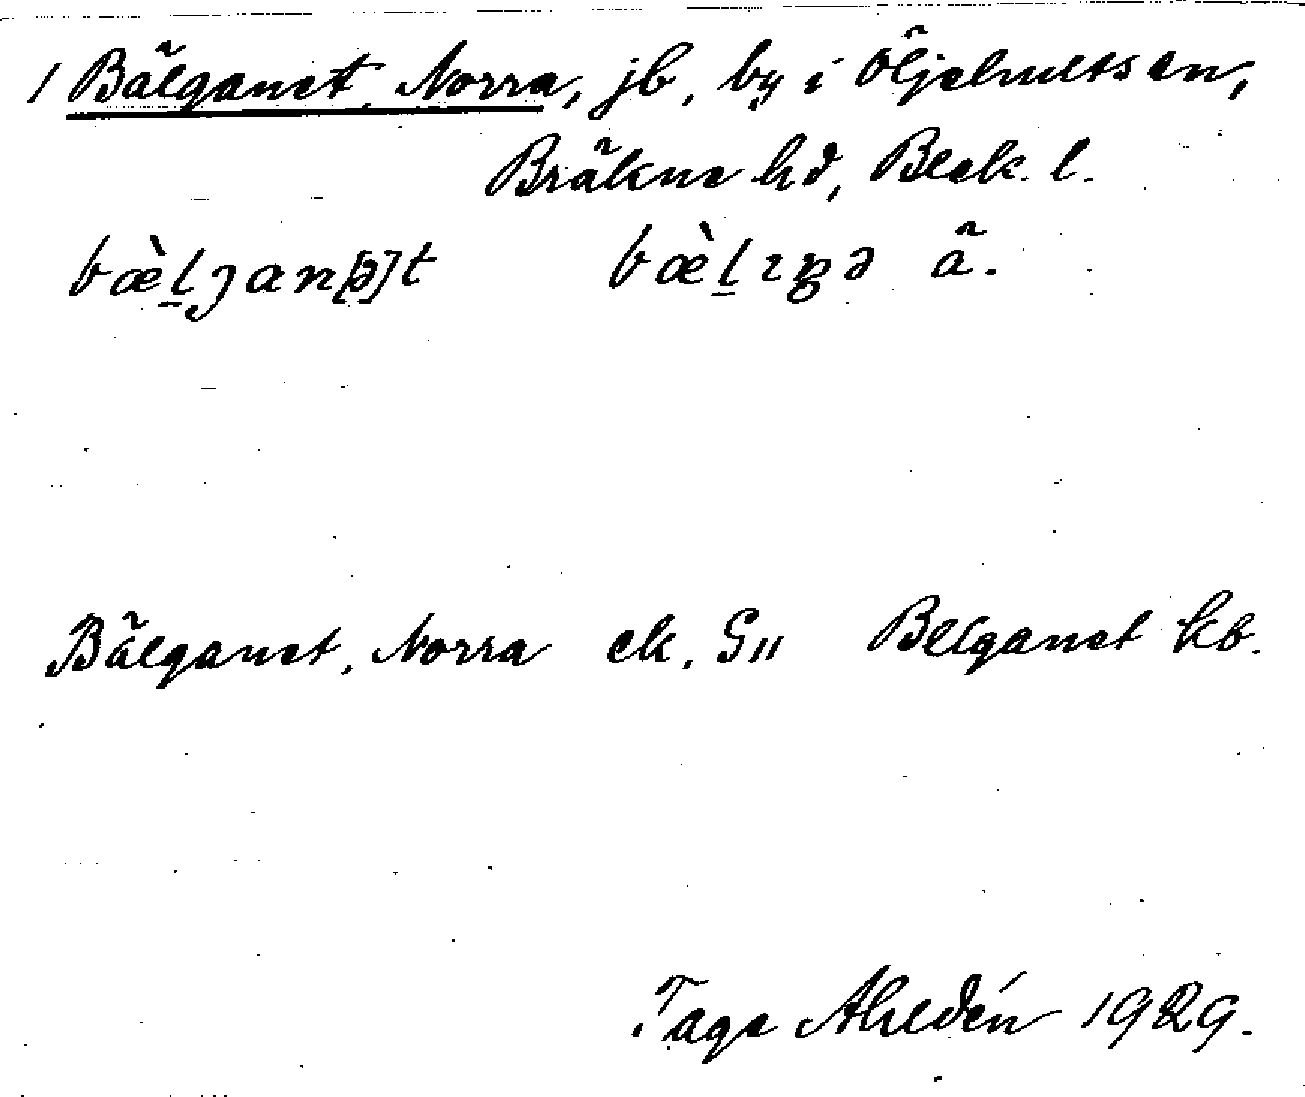 1 Bälganet, Norra, jb, by i Öljehults sn,
Bräkne hd, Blek. l.
bæ̀l̠ȷan[ə]t bæ̀l̠ıgə ä.
Bälganet, Norra ek. G" Belganet kb.
Tage Ahldén 1929.